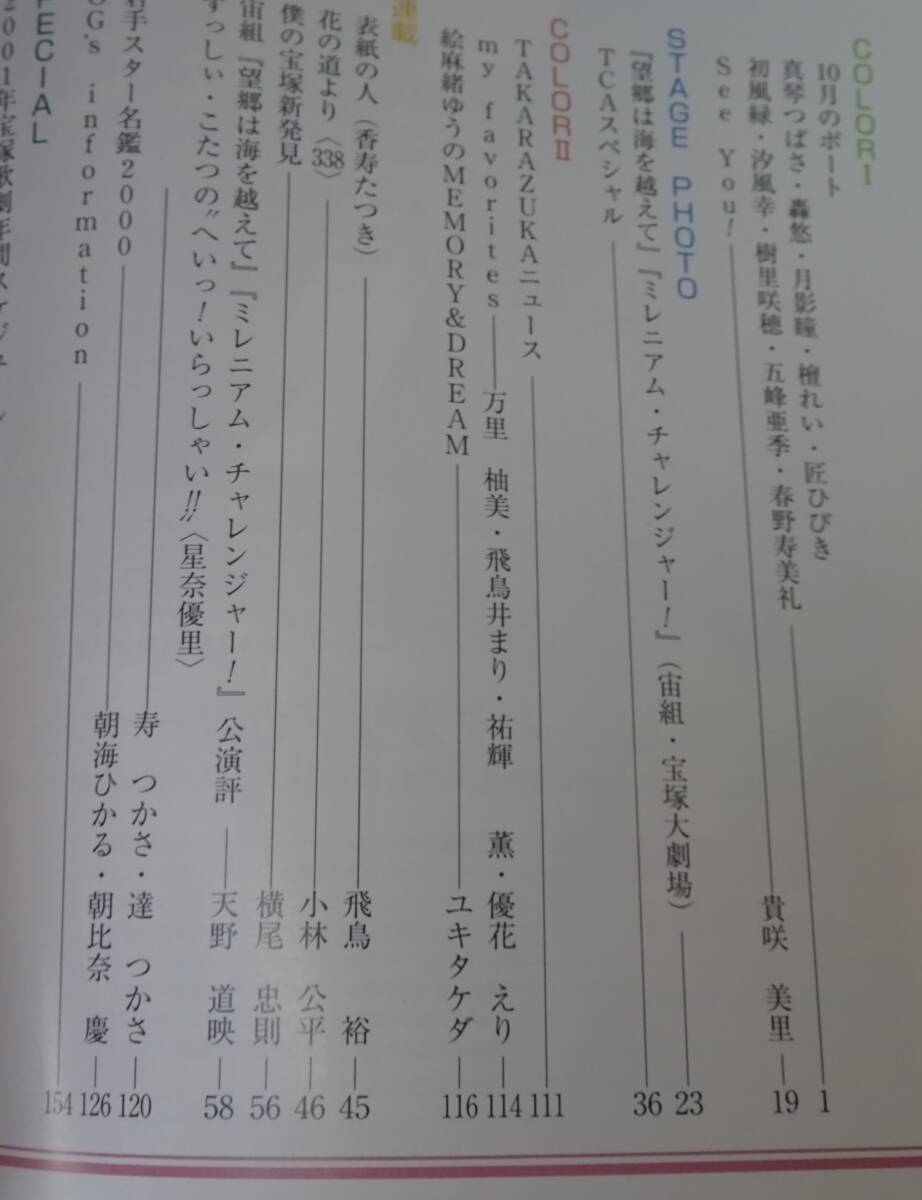 COLOR I
10月のポート
真琴つばさ・轟悠・月影瞳・檀れい・匠ひびき
初風緑・汐風幸・樹里咲穂・五峰亜季・春野寿美礼 1
See You! 貴咲 美里 19
STAGE PHOTO
『望郷は海を越えて』『ミレニアム・チャレンジャー!』(宙組・宝塚大劇場) 23
TCAスペシャル 36
COLOR II
TAKARAZUKAニュース 111
my favorites 万里 柚美・飛鳥井まり・祐輝 薫・優花 えり 114
絵麻緒ゆうのMEMORY&DREAM ユキタケダ 116
連載
表紙の人(香寿たつき) 飛鳥 裕 45
花の道より〈338〉 小林 公平 46
僕の宝塚新発見 横尾 忠則 56
宙組『望郷は海を越えて』『ミレニアム・チャレンジャー!』公演評 天野 道映 58
ずっしぃ・こたつの〝へいっ!いらっしゃい!!〈星奈優里〉
寿 つかさ・達 つかさ 120
若手スター名鑑2000 朝海ひかる・朝比奈 慶 126
OG's information 154
PECIAL
2001年宝塚歌劇年間スケジュ